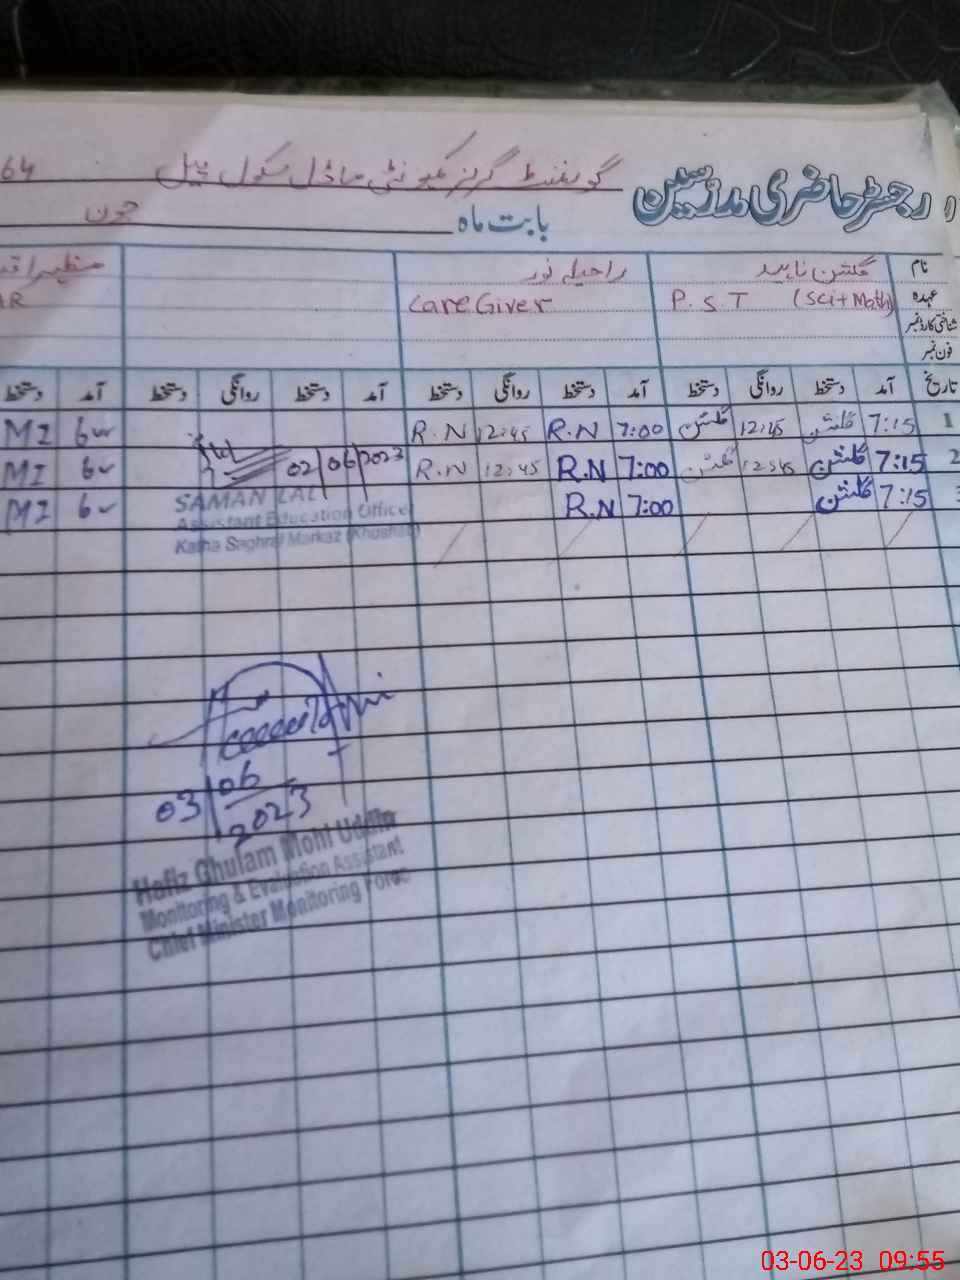 رجسٹر حاضری مدرسین گورنمنٹ گرلز کمیونٹی ماڈل سکول 64
بابت ماہ جون
نام گلشن ناہید راحیلہ نور
عہدہ P.S.T (Sci+Math) Care Giver AR
شناختی کارڈ نمبر
فون نمبر
تاریخ آمد دستخط روانگی دستخط آمد دستخط روانگی دستخط آمد دستخط روانگی دستخط آمد دستخط
1 7:15 گلشن 12:45 گلشن 7:00 R.N 12:45 R.N MI
2 7:15 گلشن 12:45 گلشن 7:00 R.N 12:45 R.N 02/06/2023 MI
3 7:15 گلشن 7:00 R.N MI
SAMAN LAL
Assistant Education Officer
Katha Saghral Markaz (Khushab)
03/06/2023
Hafiz Ghulam Mohi Uddin
Monitoring & Evaluation Assistant
Chief Minister Monitoring Force
03-06-23 09:55